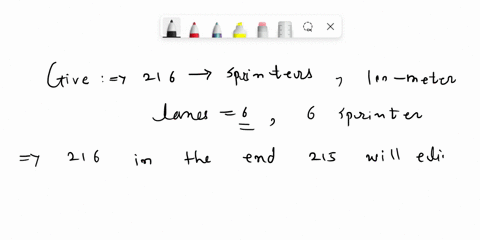 Give : => 216 → sprinters , 100-meter
lanes = 6 , 6 sprinter
=> 216 in the end 215 will eli